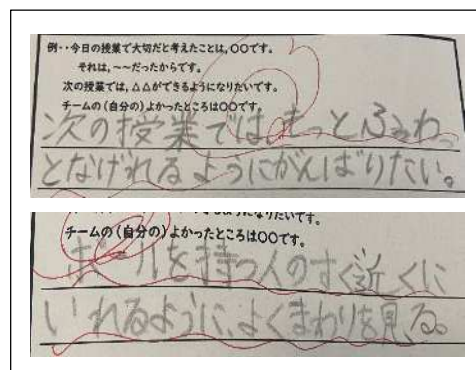 例・・今日の授業で大切だと考えたことは,〇〇です。
それは,~~だったからです。
次の授業では,△△ができるようになりたいです。
チームの(自分の)よかったところは〇〇です。
次の授業では、もっとふわっ
となげれるようにがんばりたい。
うになりたいです。
チームの(自分の)よかったところは〇〇です。
ボールを持つ人のすぐ近くに
いれるように、よくまわりを見る。